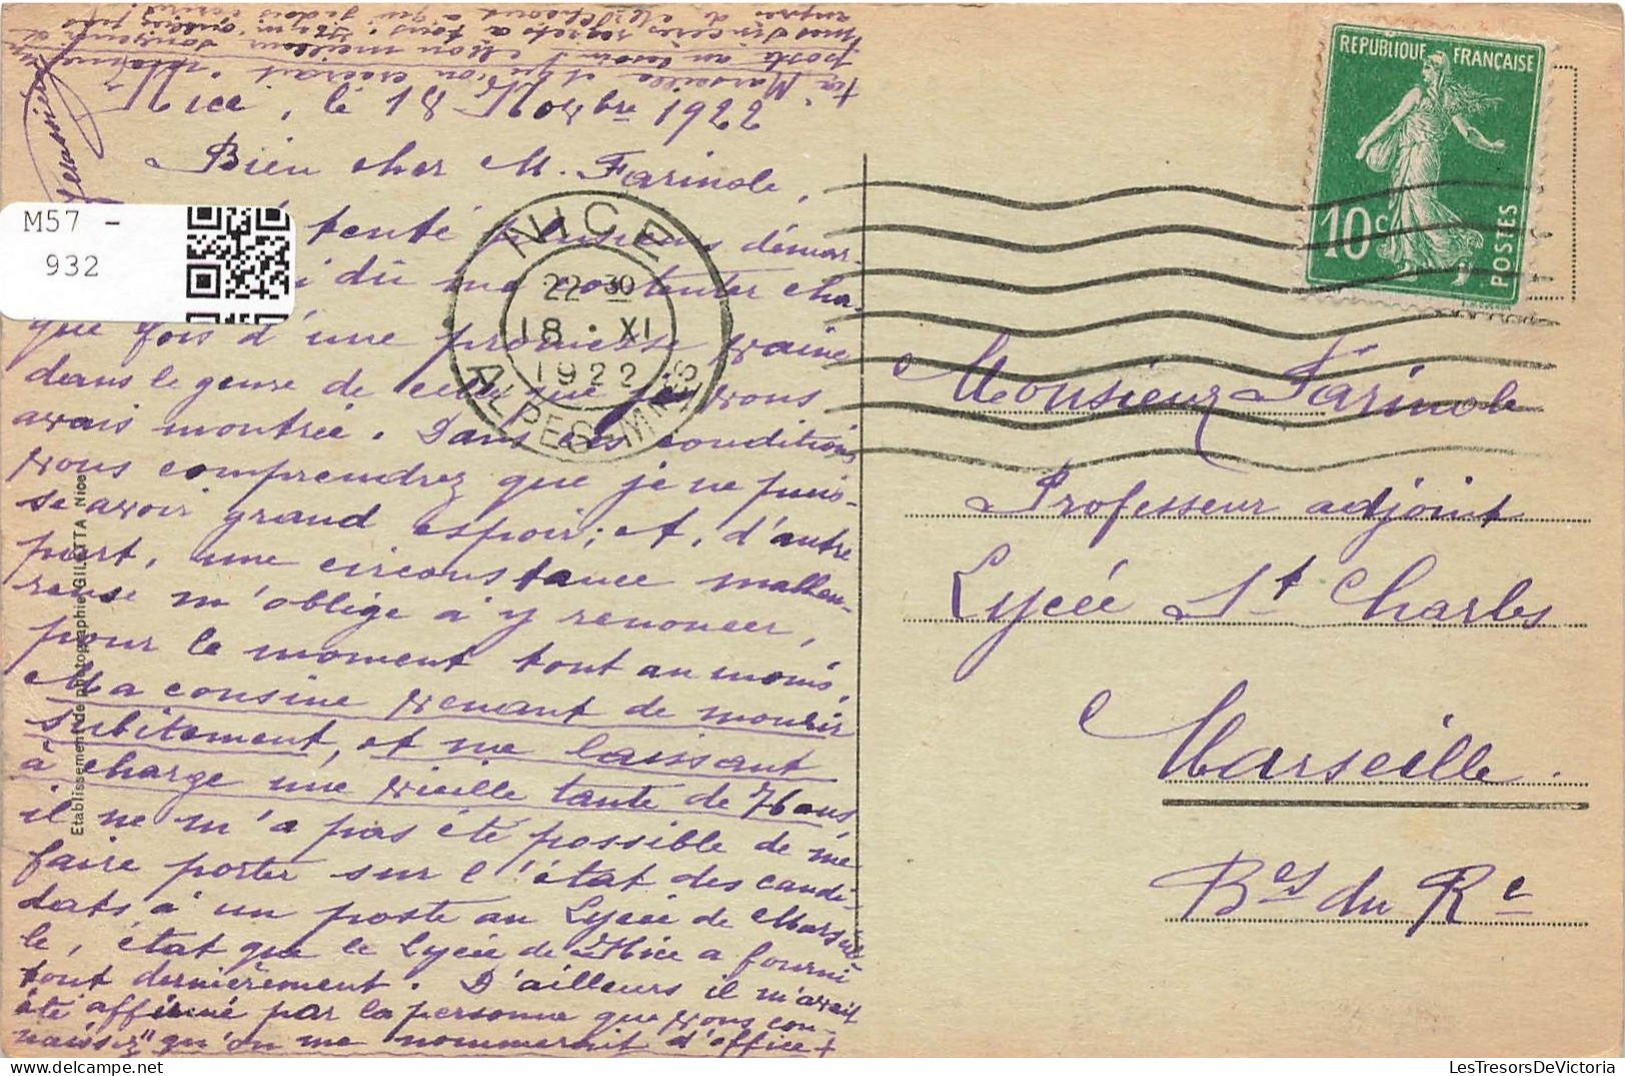 Nice, le 18 Novbre 1922
Bien cher M. Farinole,
tenté plusieurs démar-
dû me contenter cha-
que fois d'une promesse vaine
dans le genre de celle que je vous
avais montrée. Dans ces conditions
vous comprendrez que je ne puis-
se avoir grand espoir; et, d'autre
part, une circonstance malheu-
reuse m'oblige à y renoncer,
pour le moment tout au moins.
Ma cousine venant de mourir
subitement, et me laissant
à charge une vieille tante de 76 ans
il ne m'a pas été possible de me
faire porter sur l'état des candi-
dats à un poste au Lycée de Marseil-
le, état que le Lycée de Nice a fourni
tout dernièrement. D'ailleurs il m'avait
été affirmé par la personne que vous con-
naissez "qu'on me nommerait d'office +
+ à Marseille et qu'on créerait
poste au besoin". Mon meilleur souvenir
mes sincères regrets à tous.
M57 -
932
Etablissement de photographie GILETTA Nice
NICE
22 30
18 · XI
1922
ALPES-MMES
REPUBLIQUE FRANÇAISE
10c
POSTES
Monsieur Farinole
Professeur adjoint
Lycée St Charles
Marseille.
Bes du Re
LesTresorsDeVictoria